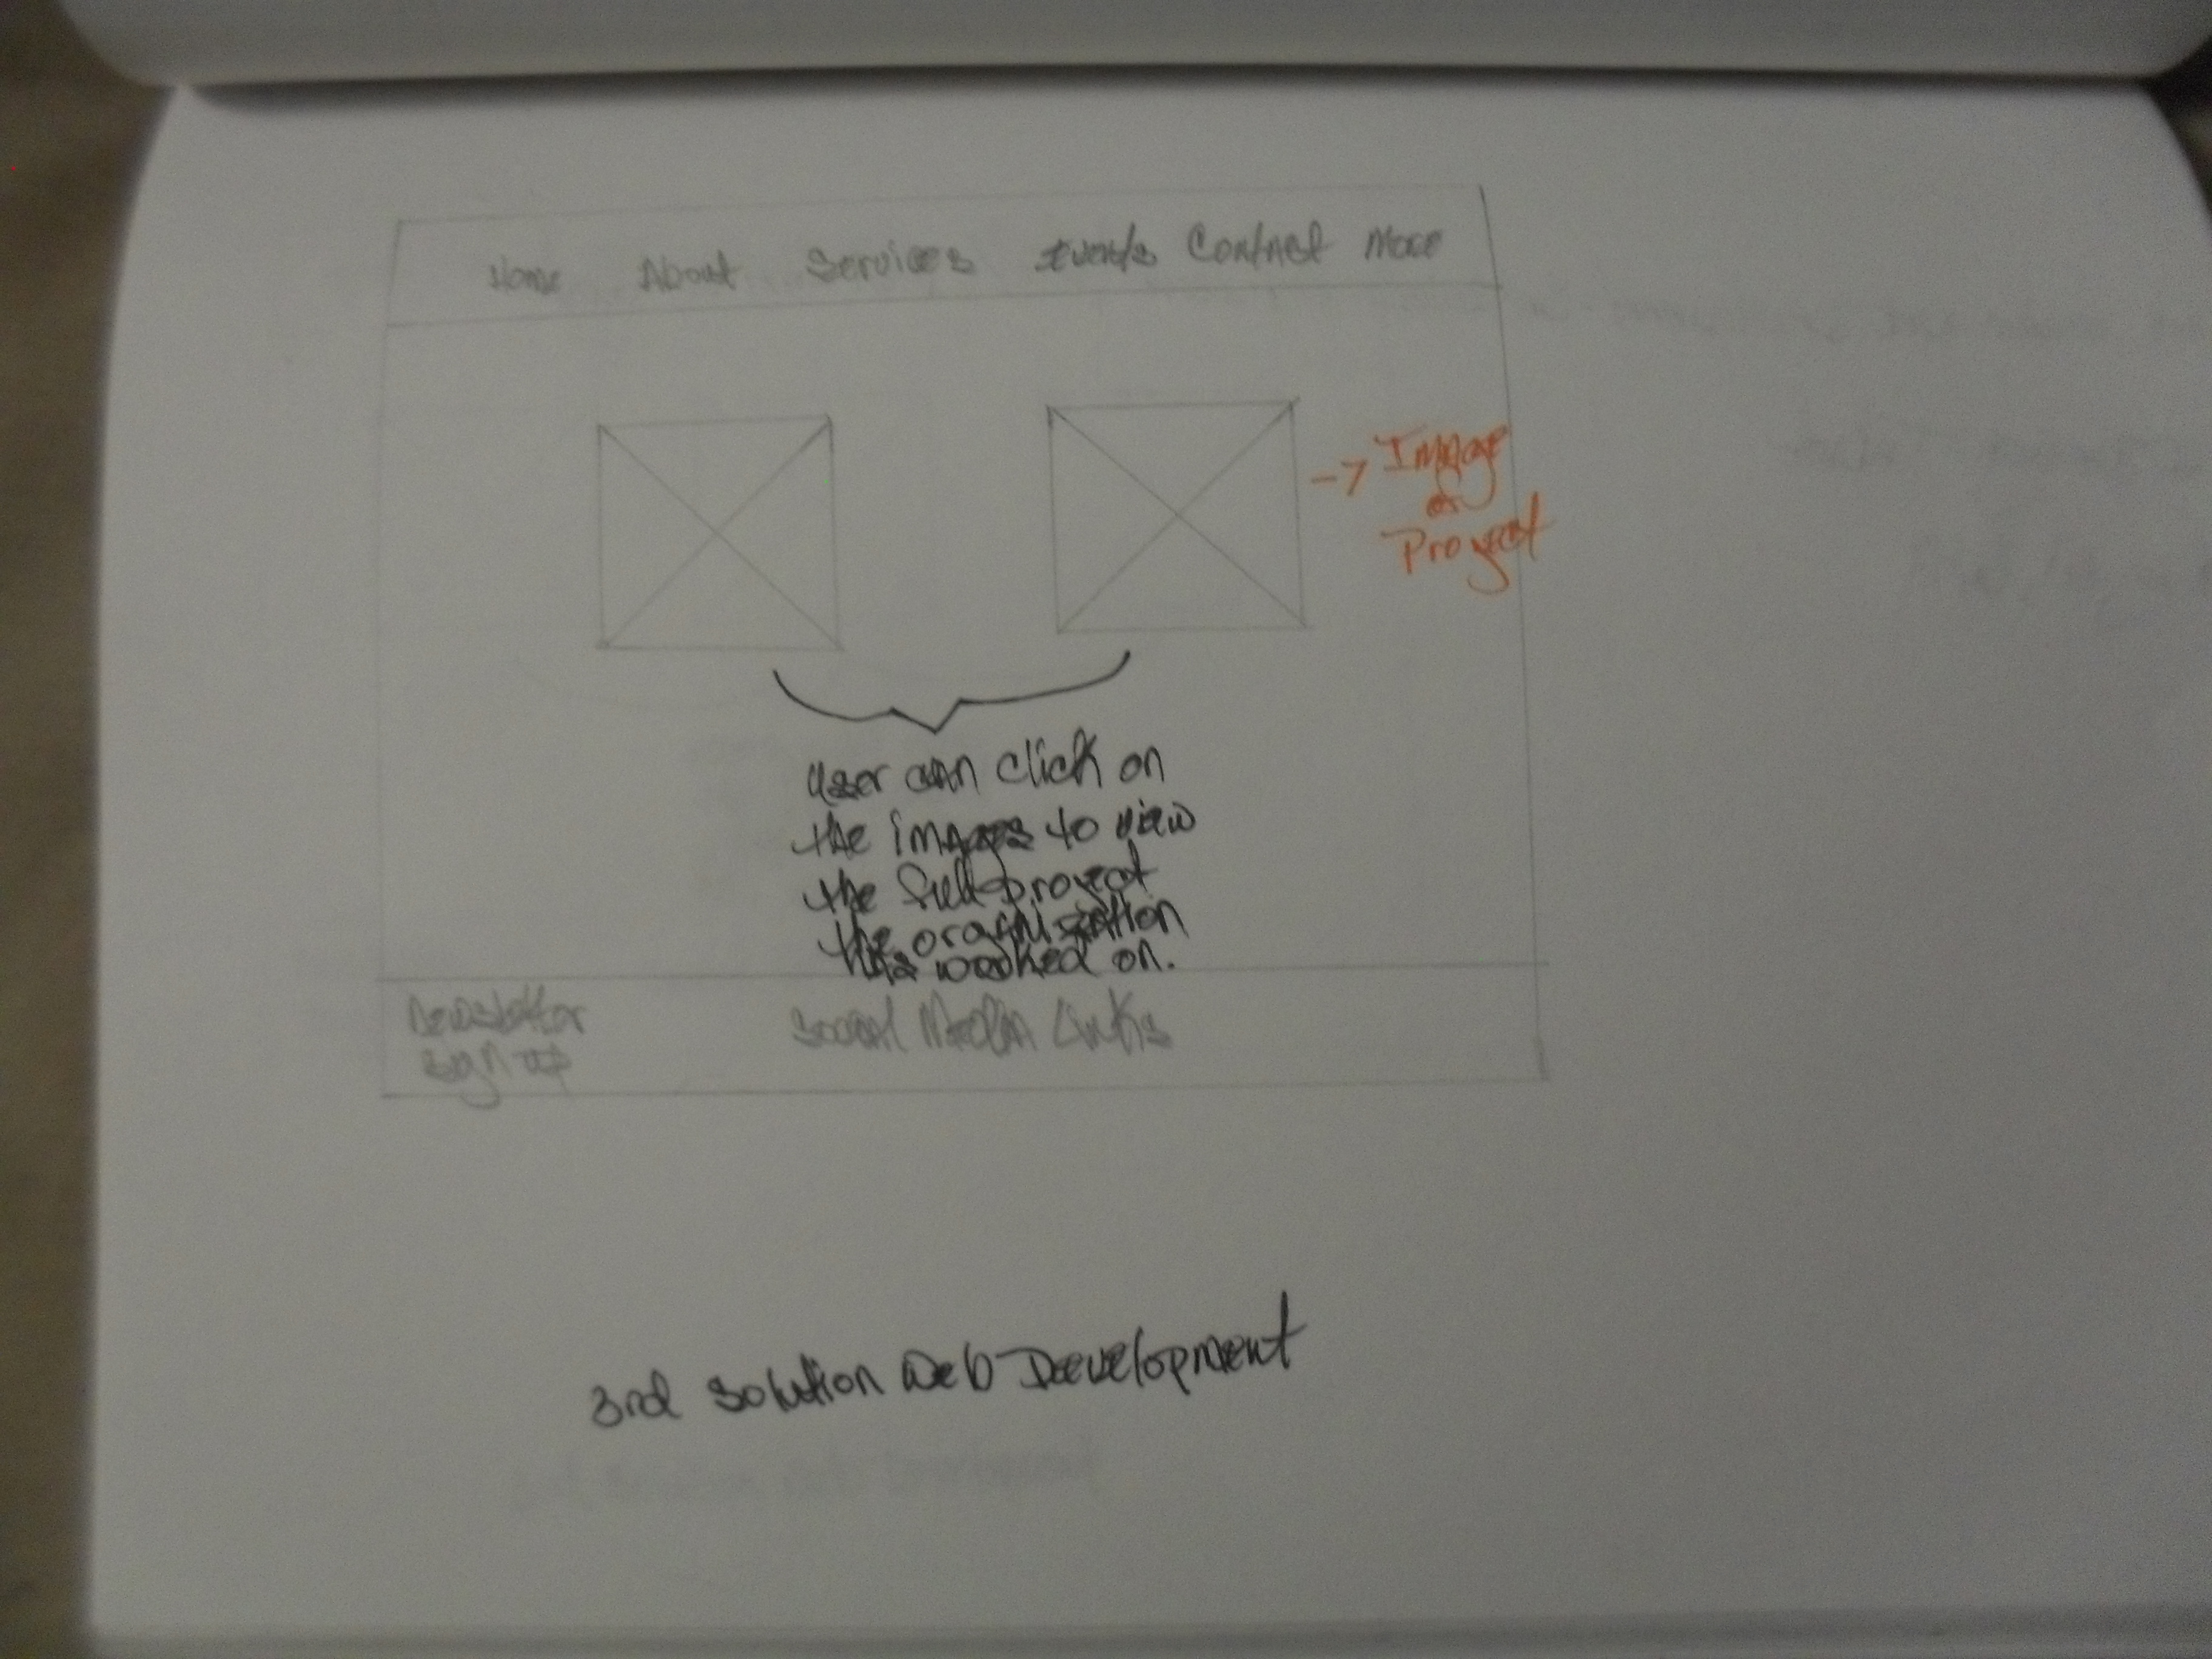 Home About Services Events Contact More
-> Image
of
Project
User can click on
the images to view
the full project
the organisation
has worked on.
Newsletter
sign up
Social Media Links
3rd solution Web Deevelopment